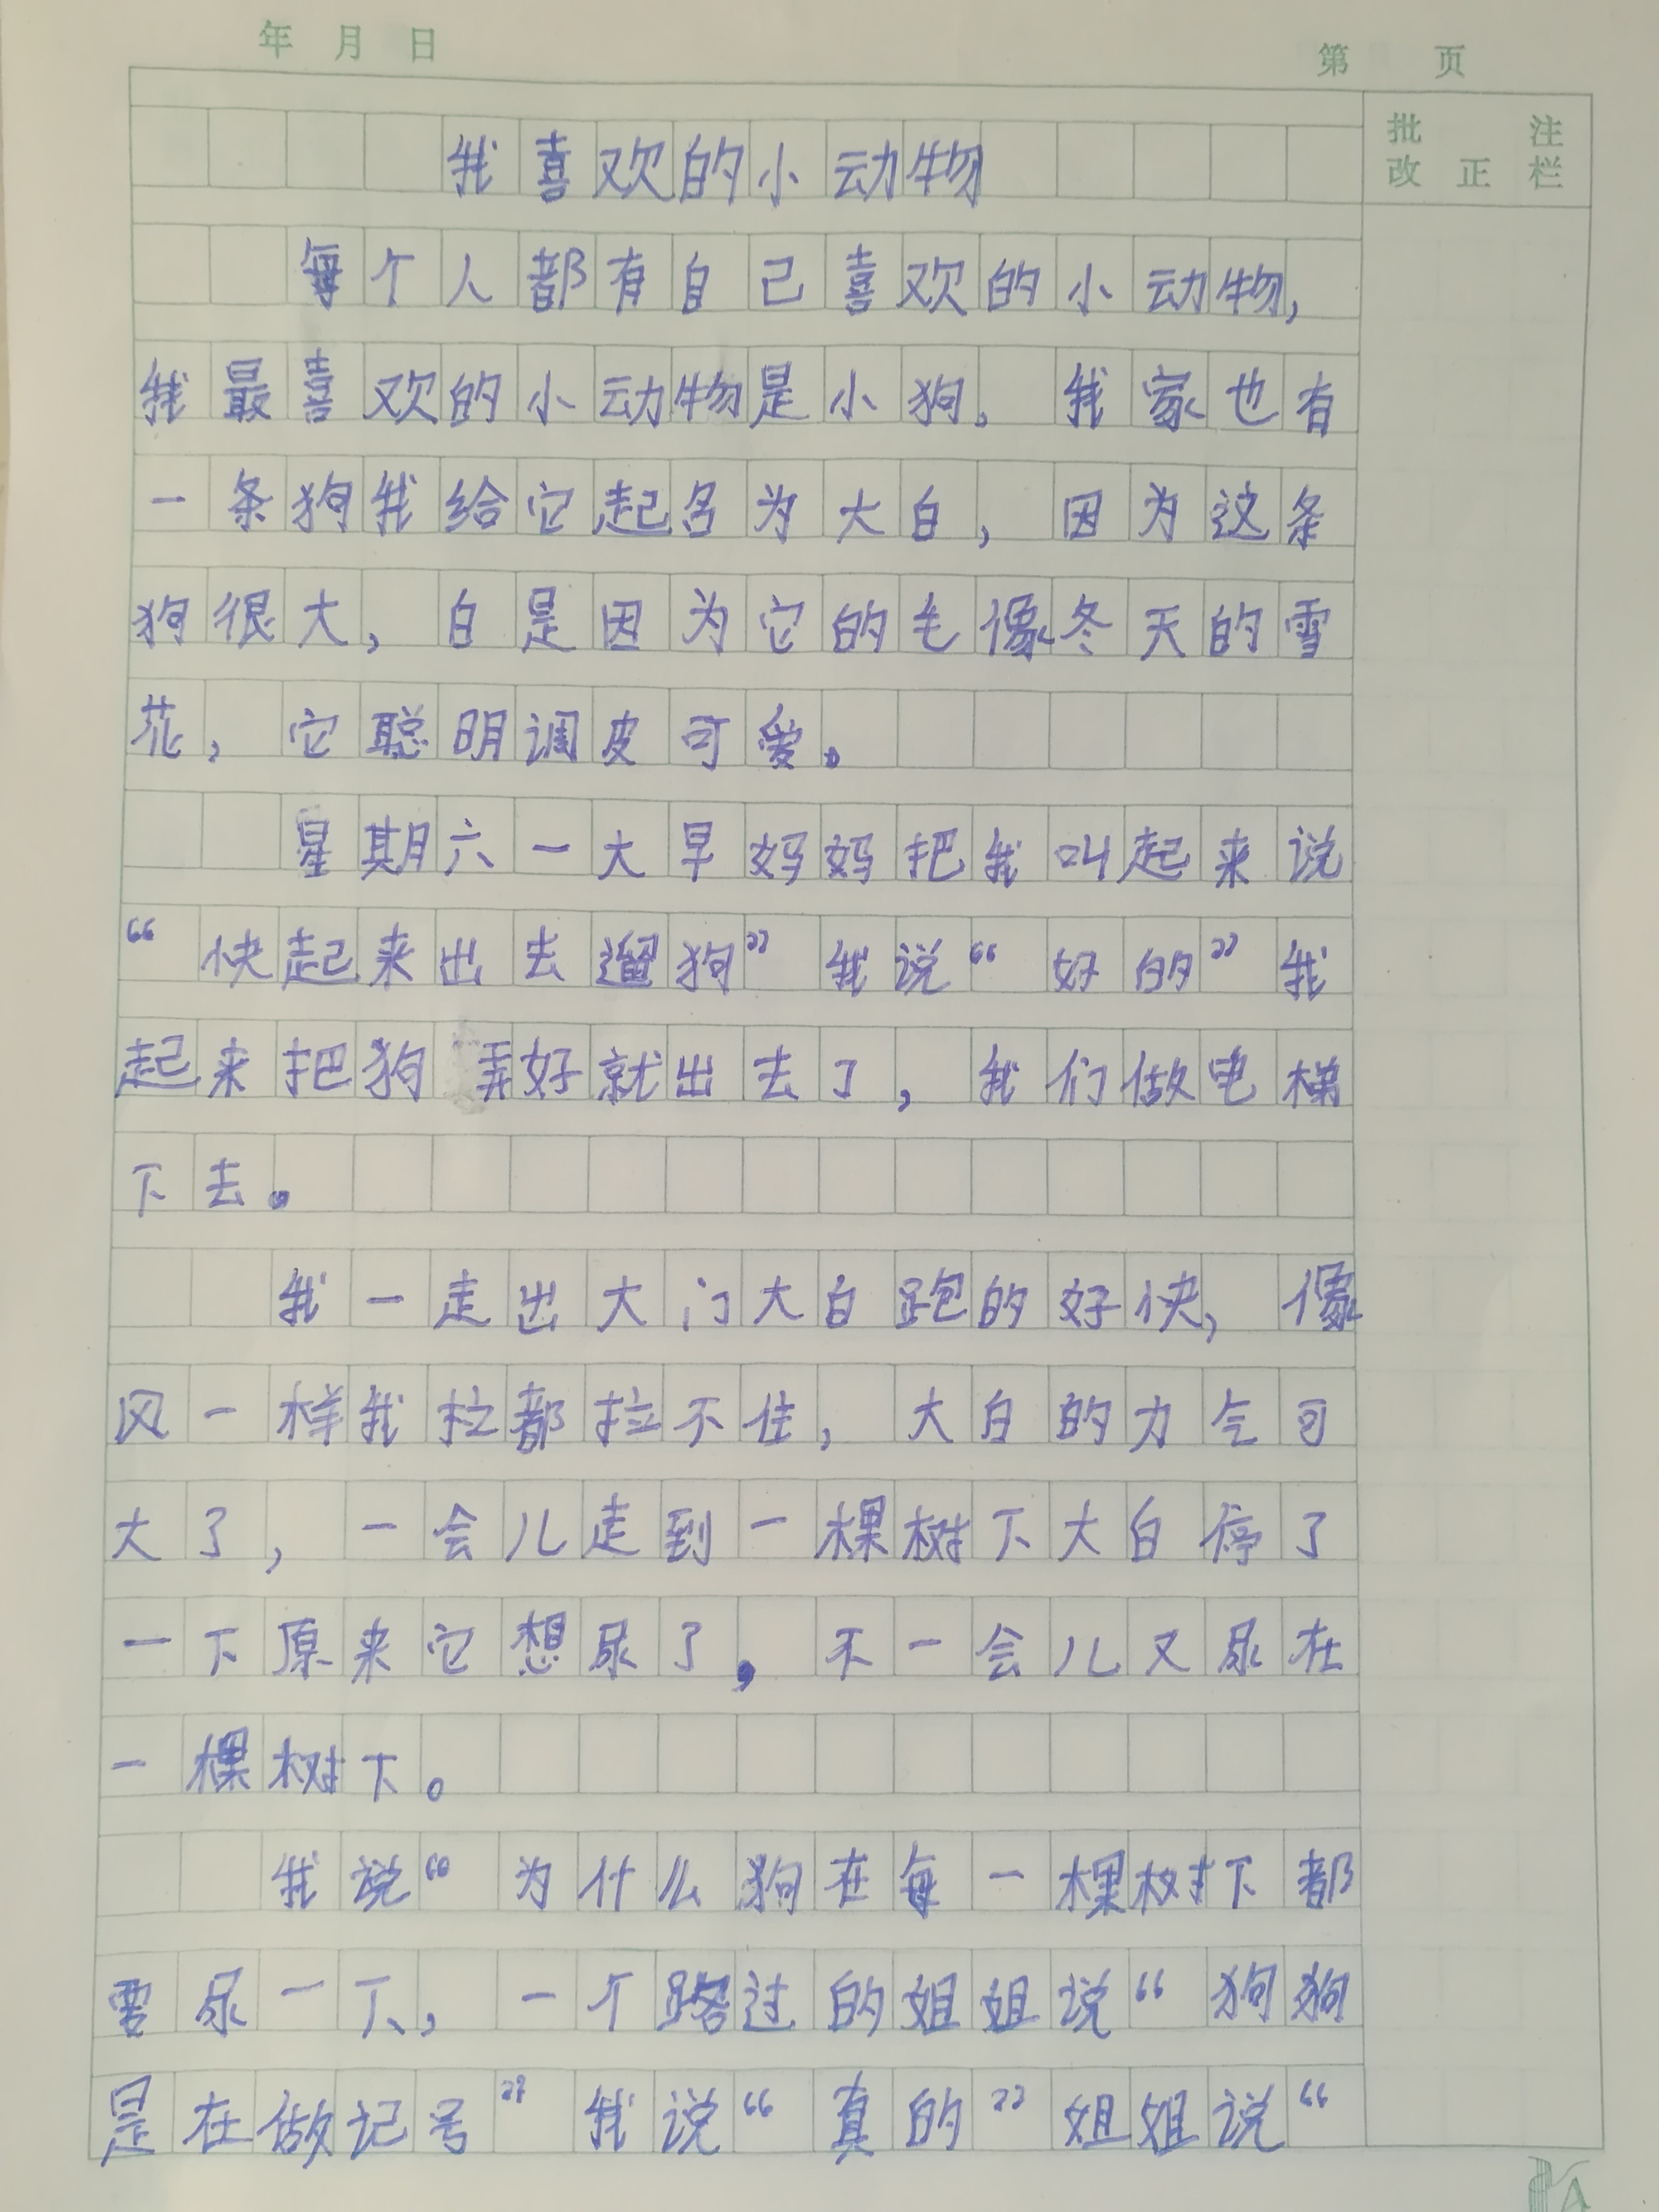 年 月 日
第 页
批 注
改 正 栏
我喜欢的小动物
每个人都有自己喜欢的小动物,
我最喜欢的小动物是小狗。我家也有
一条狗我给它起名为大白,因为这条
狗很大,白是因为它的毛像冬天的雪
花,它聪明调皮可爱。
星期六一大早妈妈把我叫起来说
“快起来出去遛狗”我说“好的”我
起来把狗弄好就出去了,我们做电梯
下去。
我一走出大门大白跑的好快,像
风一样我拉都拉不住,大白的力气可
大了,一会儿走到一棵树下大白停了
一下原来它想尿了,不一会儿又尿在
一棵树下。
我说“为什么狗在每一棵树下都
要尿一下,一个路过的姐姐说“狗狗
是在做记号”我说“真的”姐姐说“